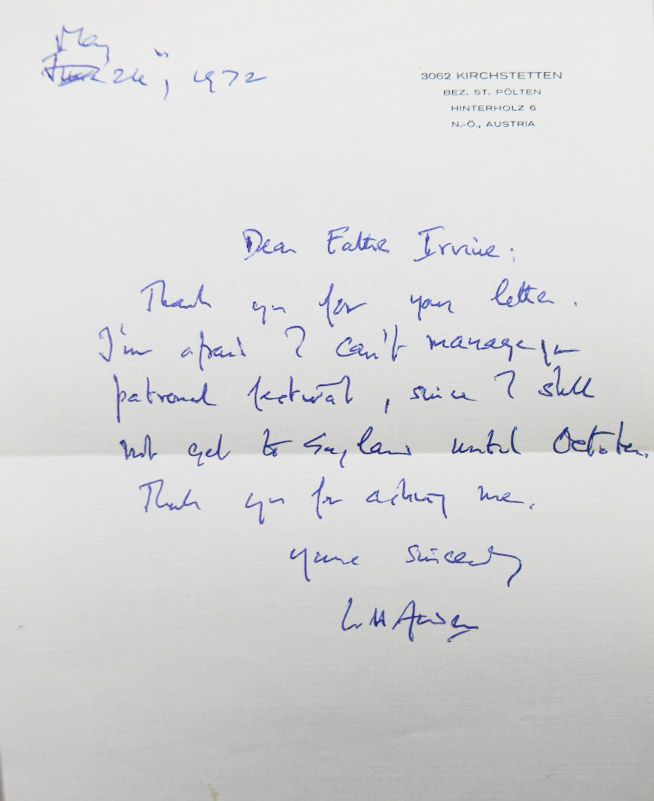 May
24", 1972
3062 KIRCHSTETTEN
BEZ. ST. PÖLTEN
HINTERHOLZ 6
N.-Ö., AUSTRIA
Dear Father Irvine:
Thank you for your letter.
I'm afraid I can't manage your
patronal festival, since I shall
not get to England until October.
Thank you for asking me.
Yours sincerely
W H Auden